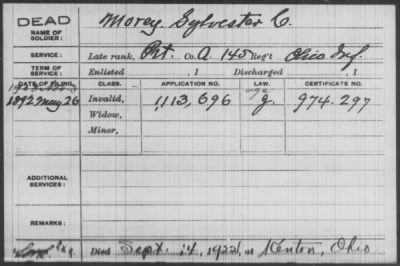 DEAD
NAME OF SOLDIER: Morey, Sylvester C.
SERVICE: Late rank, Pvt. Co. A. 145 Reg't Ohio Inf.
TERM OF SERVICE: Enlisted , 1 Discharged , 1
DATE OF FILING. CLASS. APPLICATION NO. LAW. CERTIFICATE NO.
1892 May 26 Invalid, 1,113,696 g. 974.297
Widow,
Minor,
ADDITIONAL SERVICES:
REMARKS:
Died Sept. 14, 1922, at Kenton, Ohio